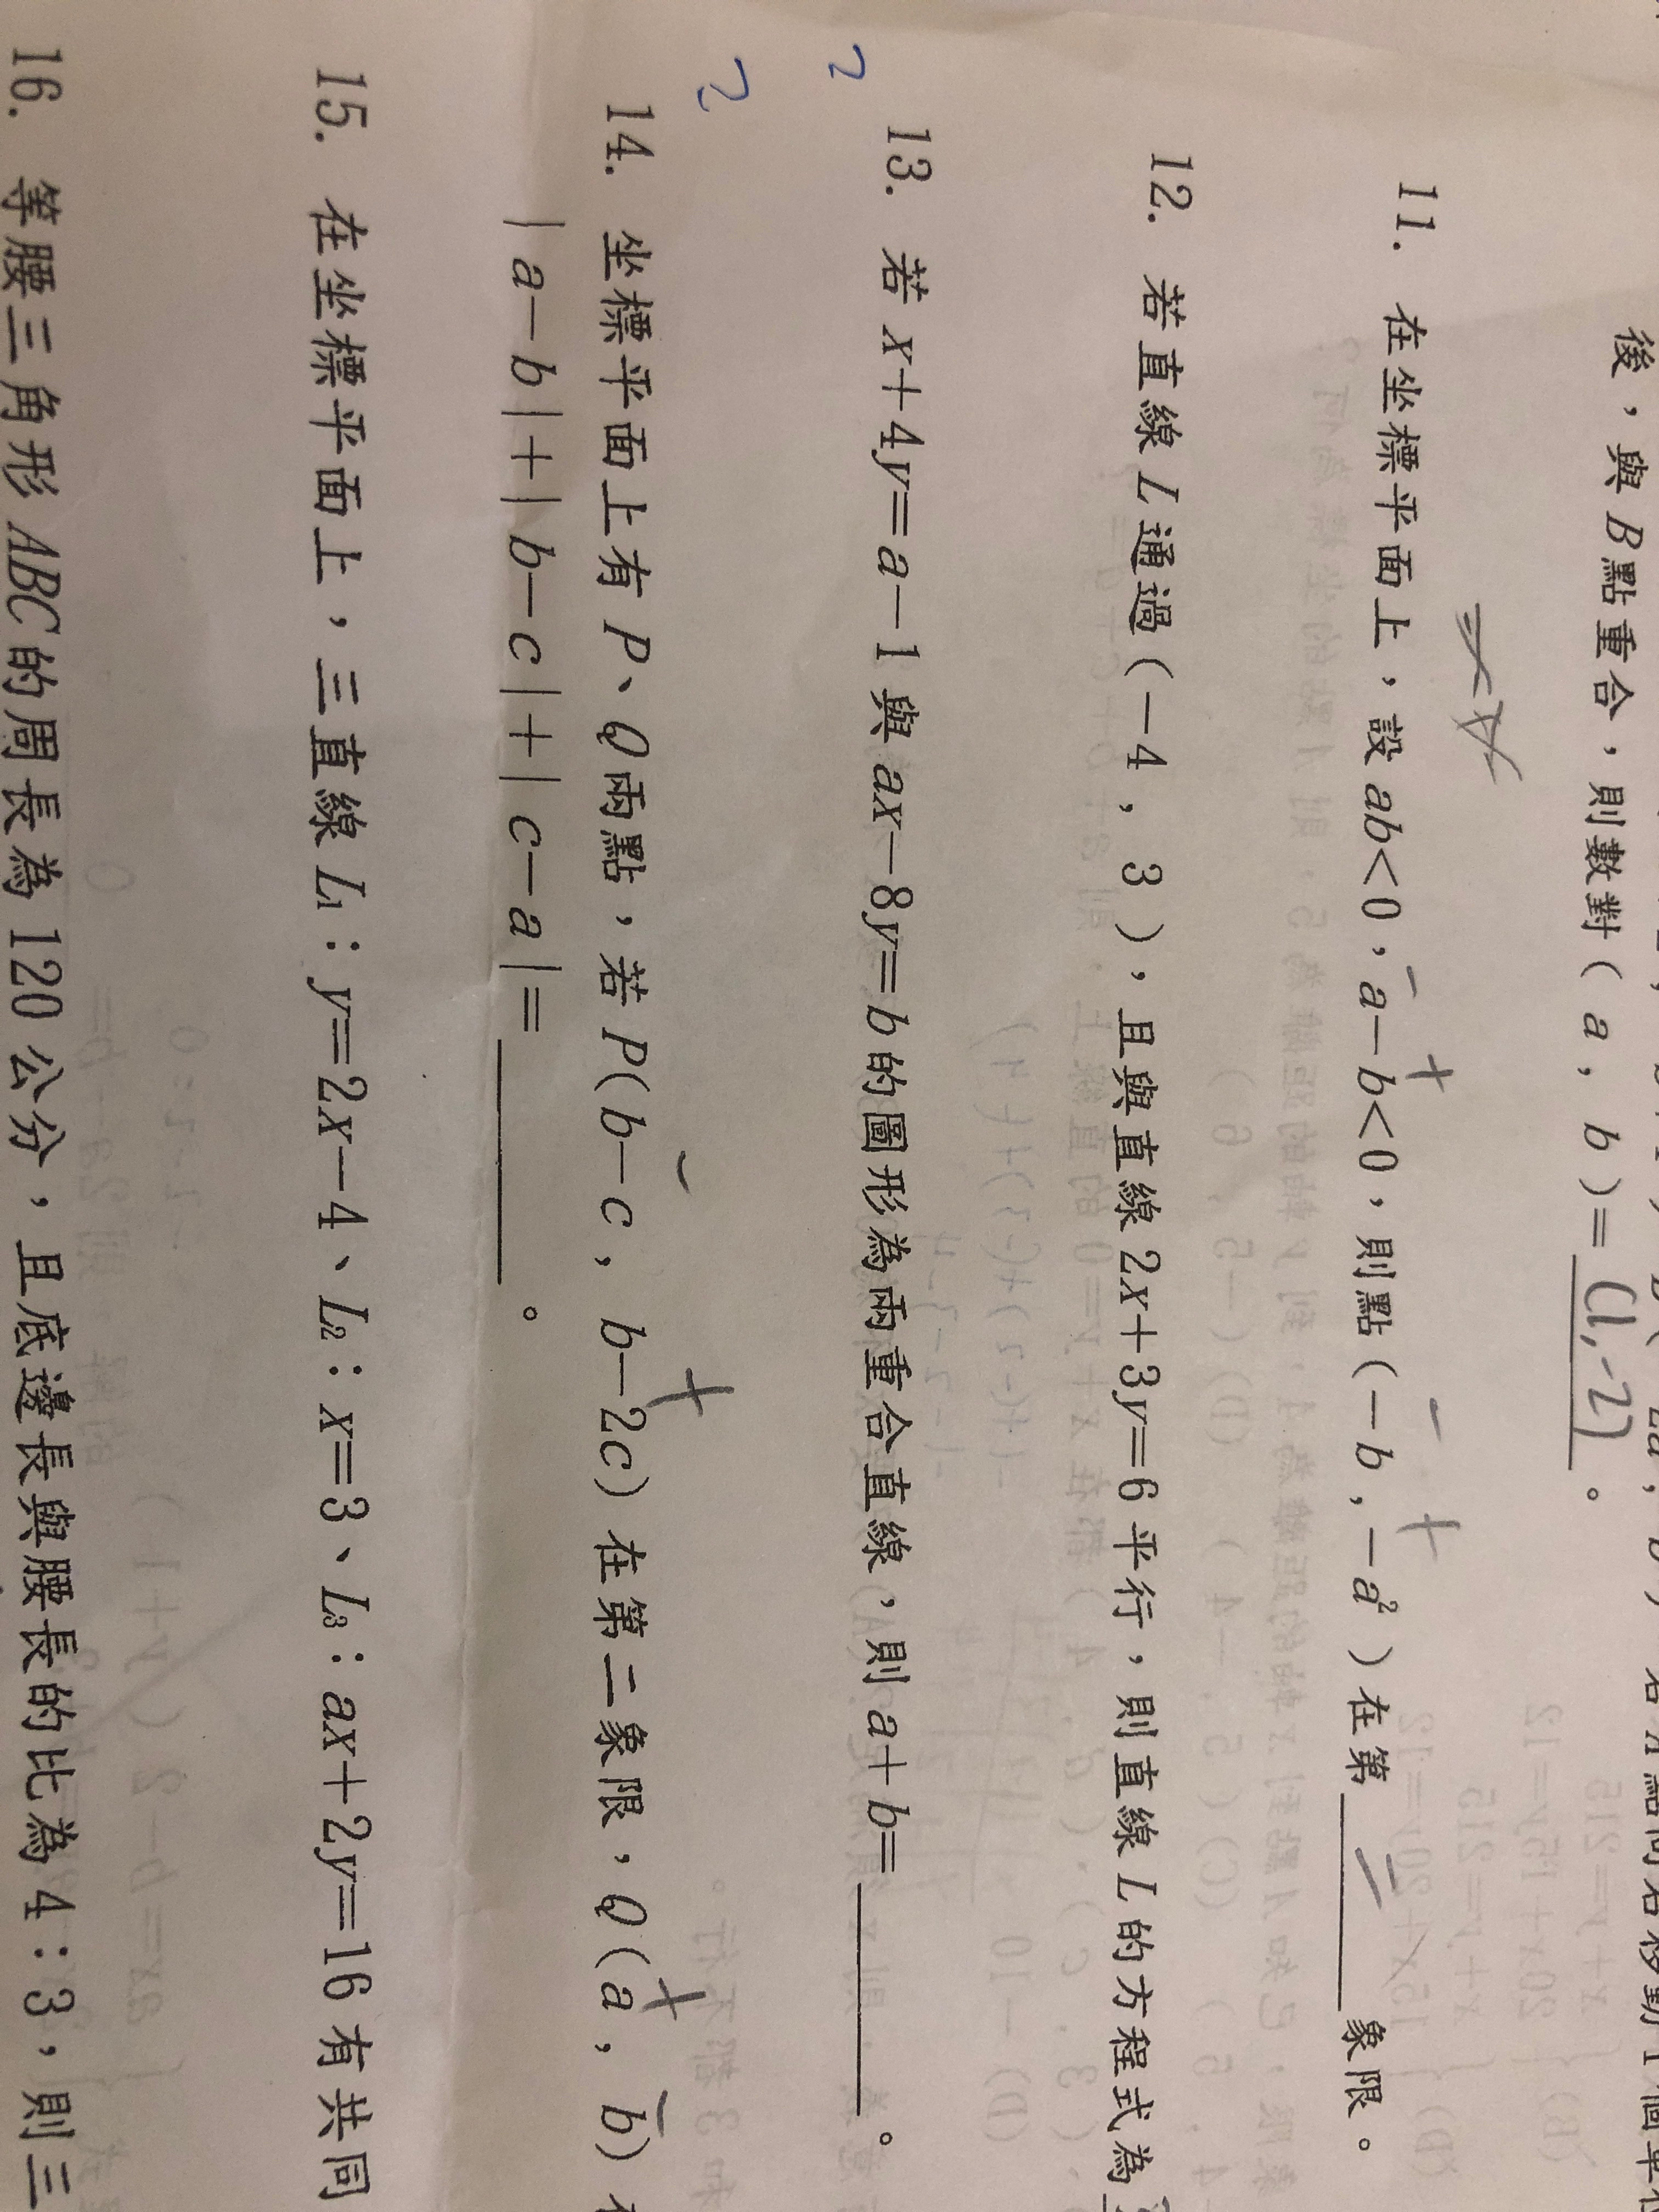 後，與B點重合，則數對( a , b )= (1,-2) 。
11. 在坐標平面上，設ab<0，a－b<0，則點(－b,－a²)在第 二 象限。
12. 若直線L通過(－4 , 3 )，且與直線2x＋3y＝6平行，則直線L的方程式為
13. 若x＋4y＝a－1與ax－8y＝b的圖形為兩重合直線，則a＋b＝ 。
14. 坐標平面上有P、Q兩點，若P(b－c , b－2c)在第二象限，Q(a , b)
|a－b|＋|b－c|＋|c－a|＝ 。
15. 在坐標平面上，三直線L₁：y＝2x－4、L₂：x＝3、L₃：ax＋2y＝16有共同
16. 等腰三角形ABC的周長為120公分，且底邊長與腰長的比為4：3，則三